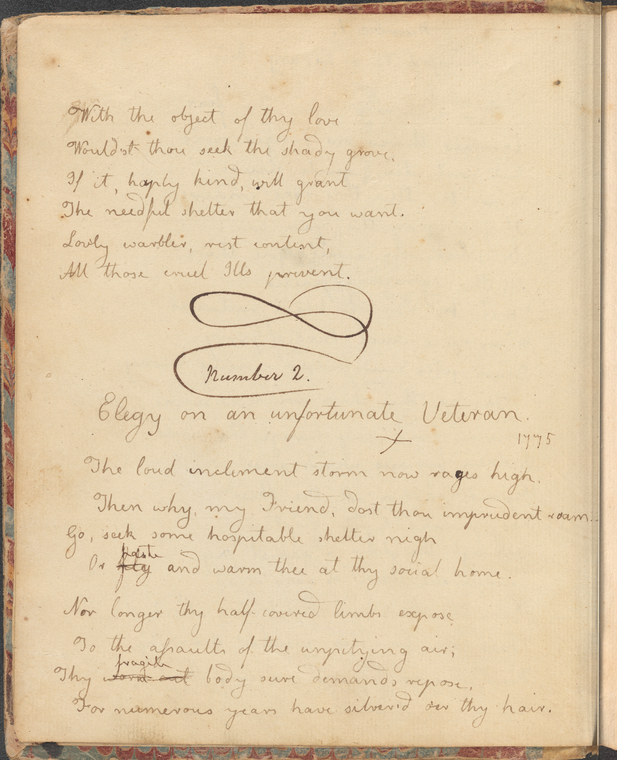 With the object of thy love
Wouldst thou seek the shady grove,
If it, haply kind, will grant
The needful shelter that you want.
Lovly warbler, rest content,
All those cruel Ills prevent.
Number 2.
Elegy on an unfortunate Veteran.
1775
The loud inclement storm now rages high,
Then why, my Friend, dost thou imprudent roam.
Go, seek some hospitable shelter nigh
haste
Or fly and warm thee at thy social home.
Nor longer thy half-covered limbs expose
To the assaults of the unpitying air;
fragile
Thy worn out body sure demands repose,
For numerous years have silver'd o'er thy hair.